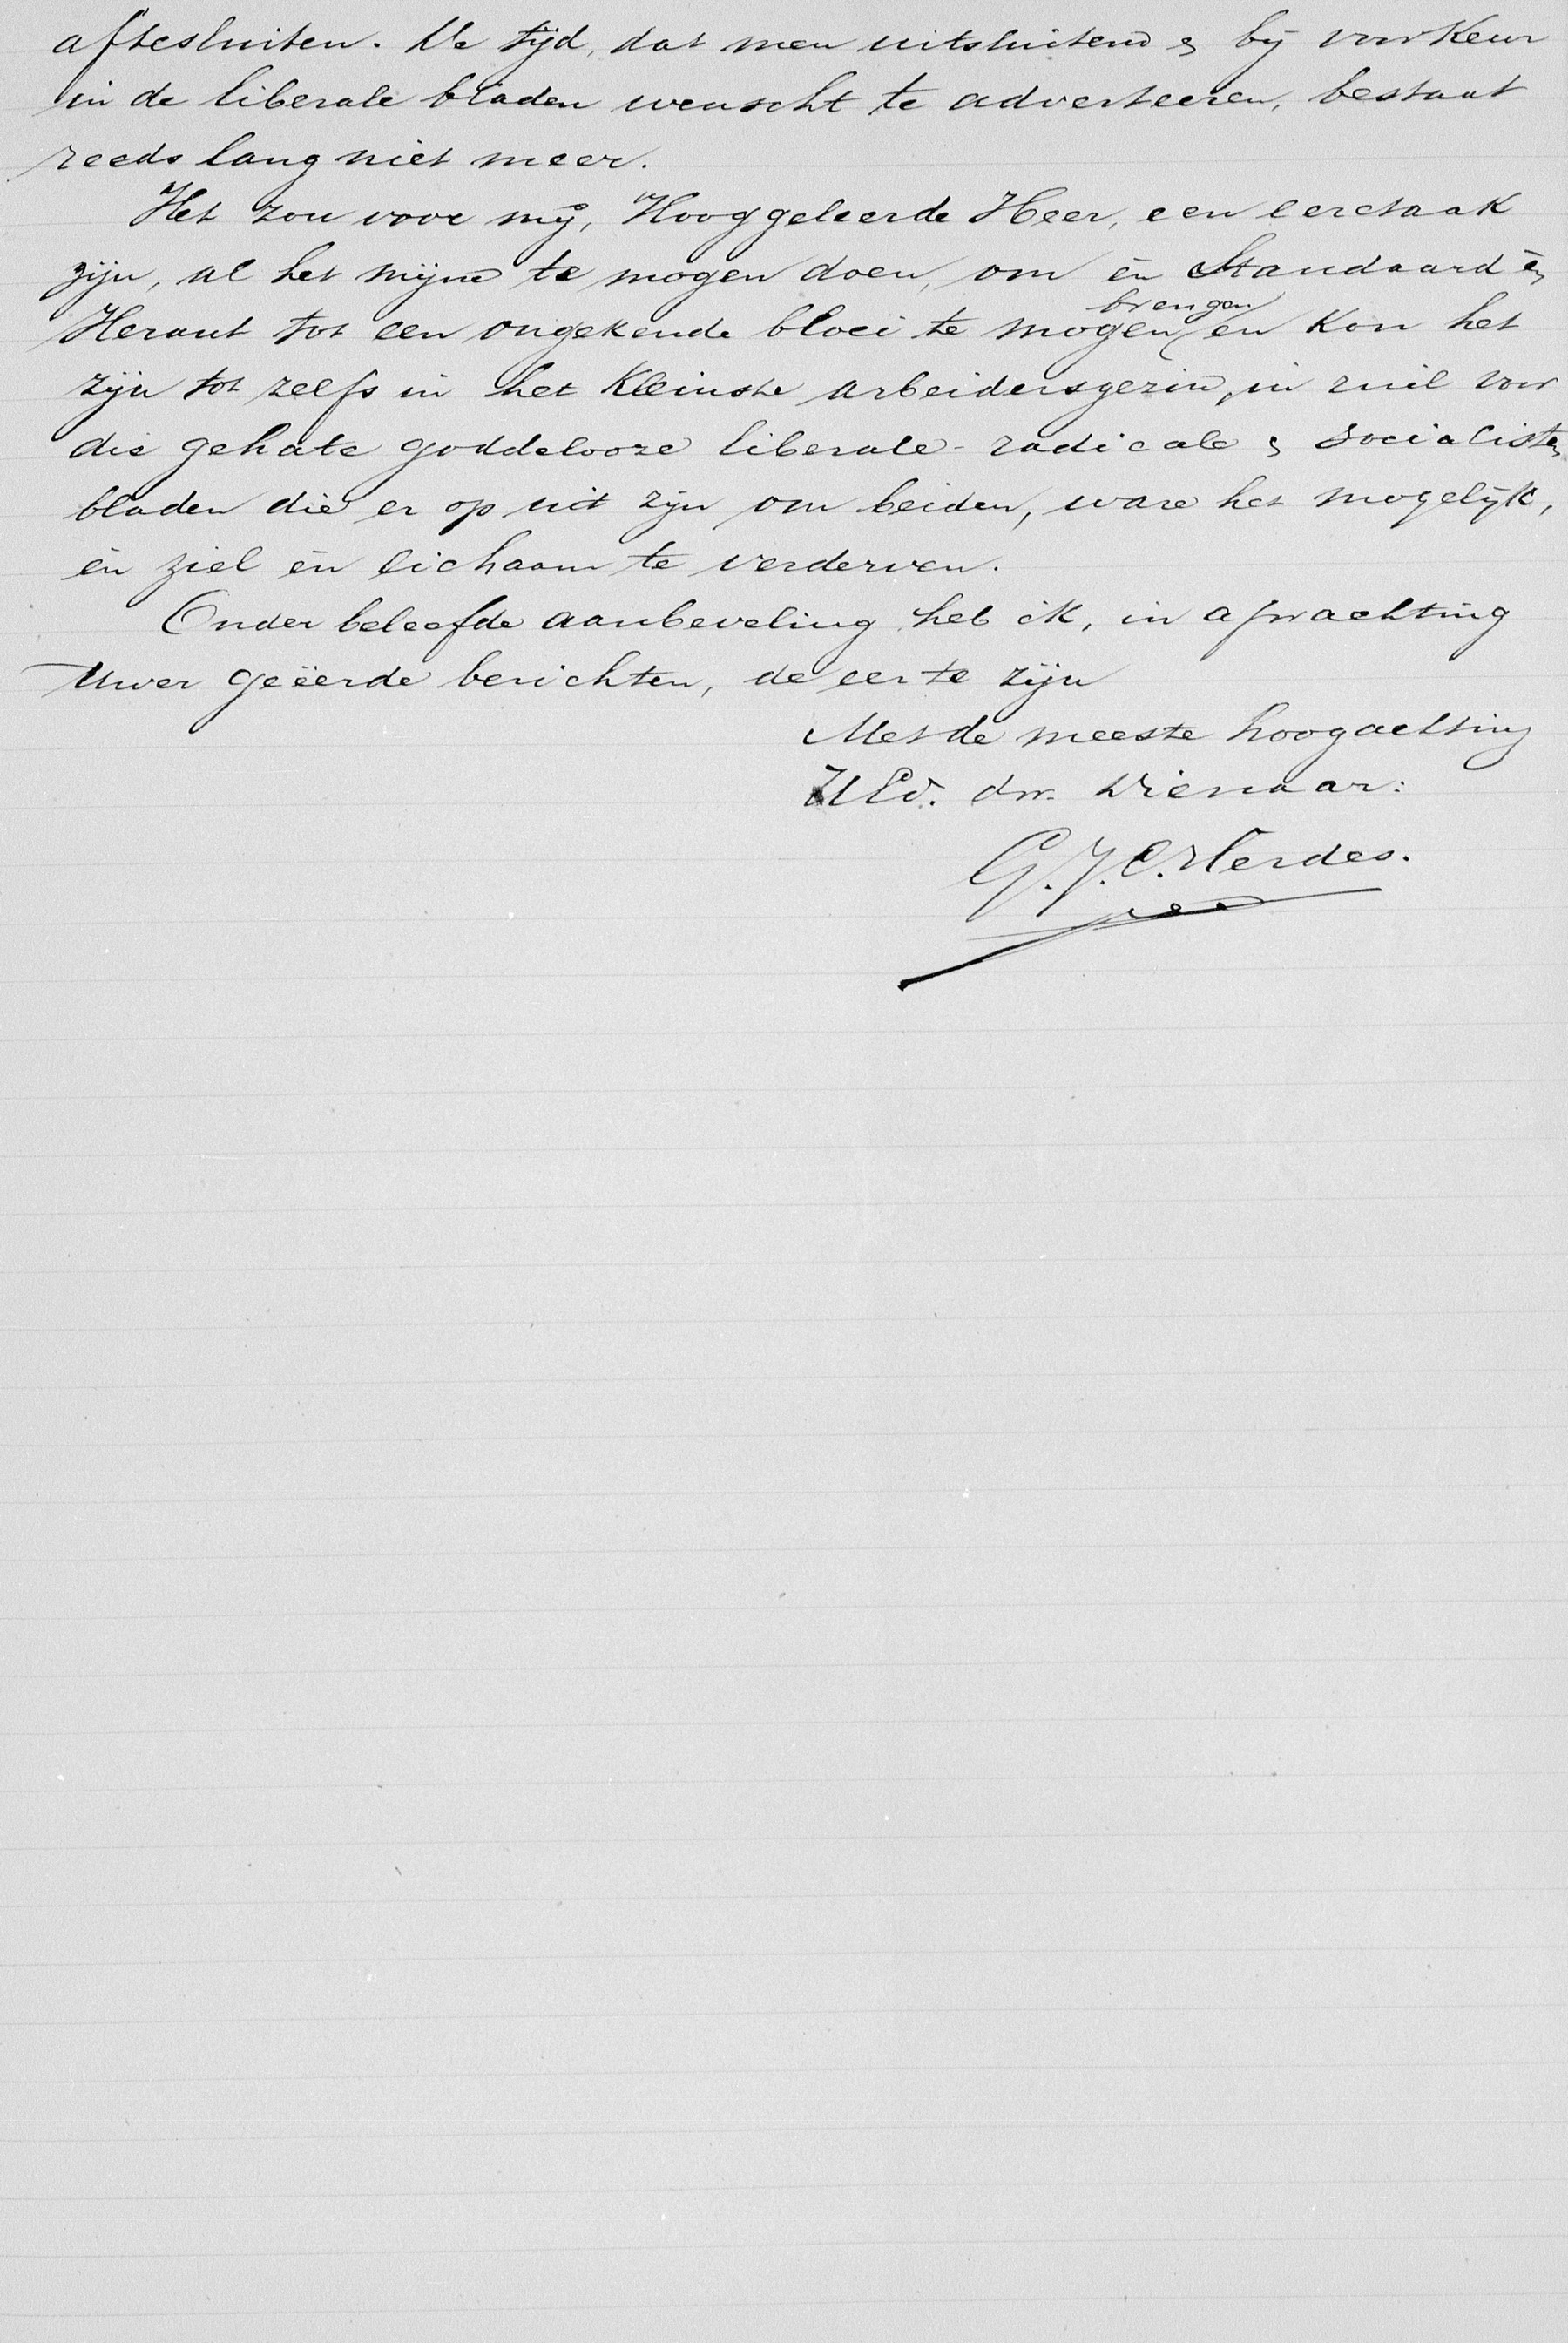 aftesluiten. De tijd, dat men uitsluitend & bij voorkeur
in de liberale bladen wenscht te adverteeren, bestaat
reeds lang niet meer.
Het zou voor mij, Hooggeleerde Heer, een eeretaak
zijn, al het mijne te mogen doen, om èn Standaard èn
Heraut tot een ongekende bloei te mogen brengen en kon het
zijn tot zelfs in het kleinste arbeidersgezin, in ruil voor
die gehate goddelooze liberale- radicale & socialisten
bladen die er op uit zijn om beiden, ware het mogelijk,
èn ziel èn lichaam te verderven.
Onder beleefde aanbeveling heb ik, in afwachting
Uwer geëerde berichten, de eer te zijn
Met de meeste hoogachting
UEd. dw. Dienaar:
G. J. C. Herdes.